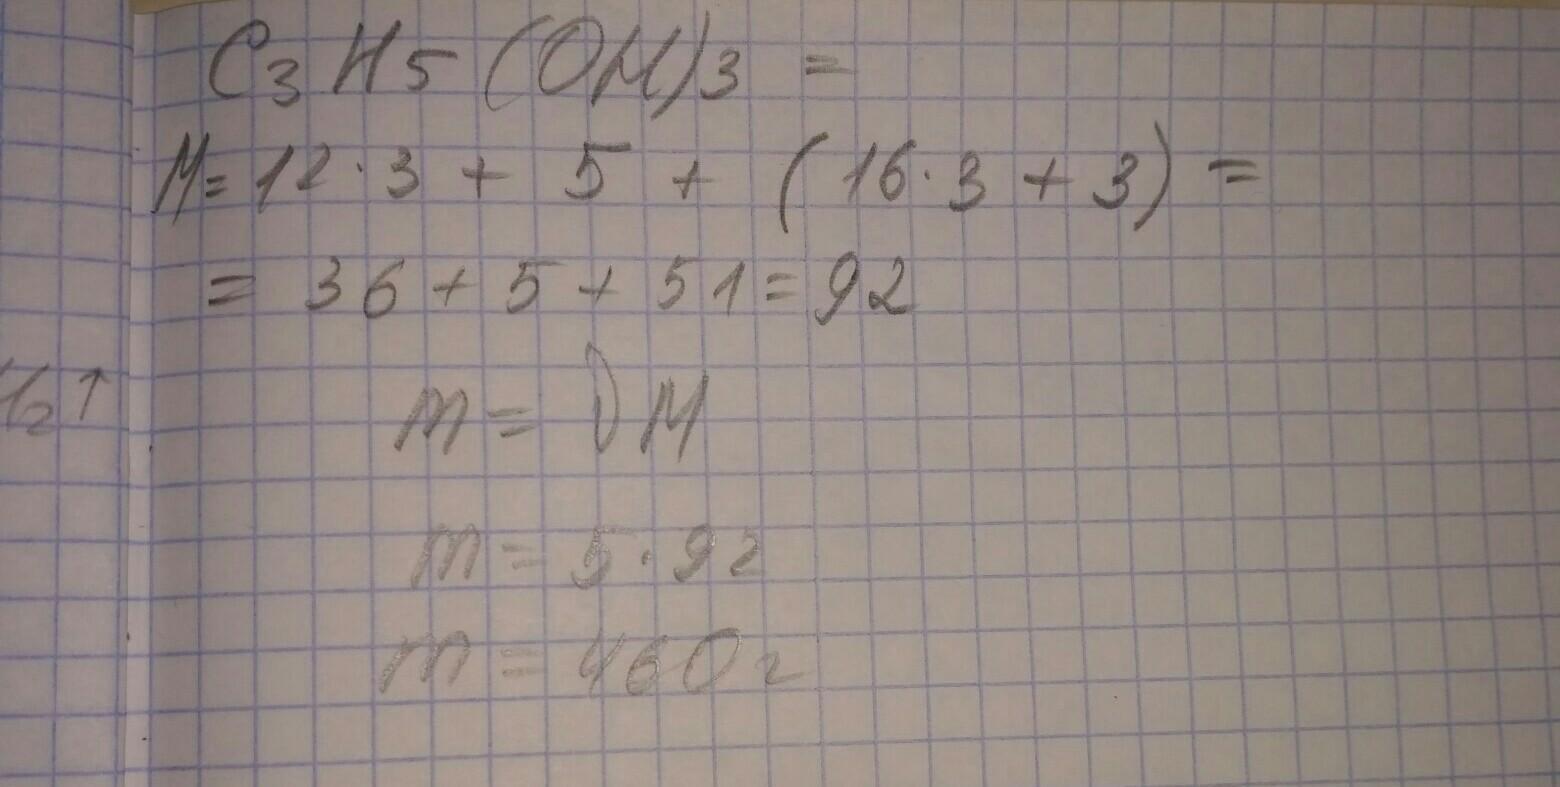 C3H5(OH)3 =
M = 12·3 + 5 + (16·3 + 3) =
= 36 + 5 + 51 = 92
m = νM
m = 5·92
m = 460 г
H2↑